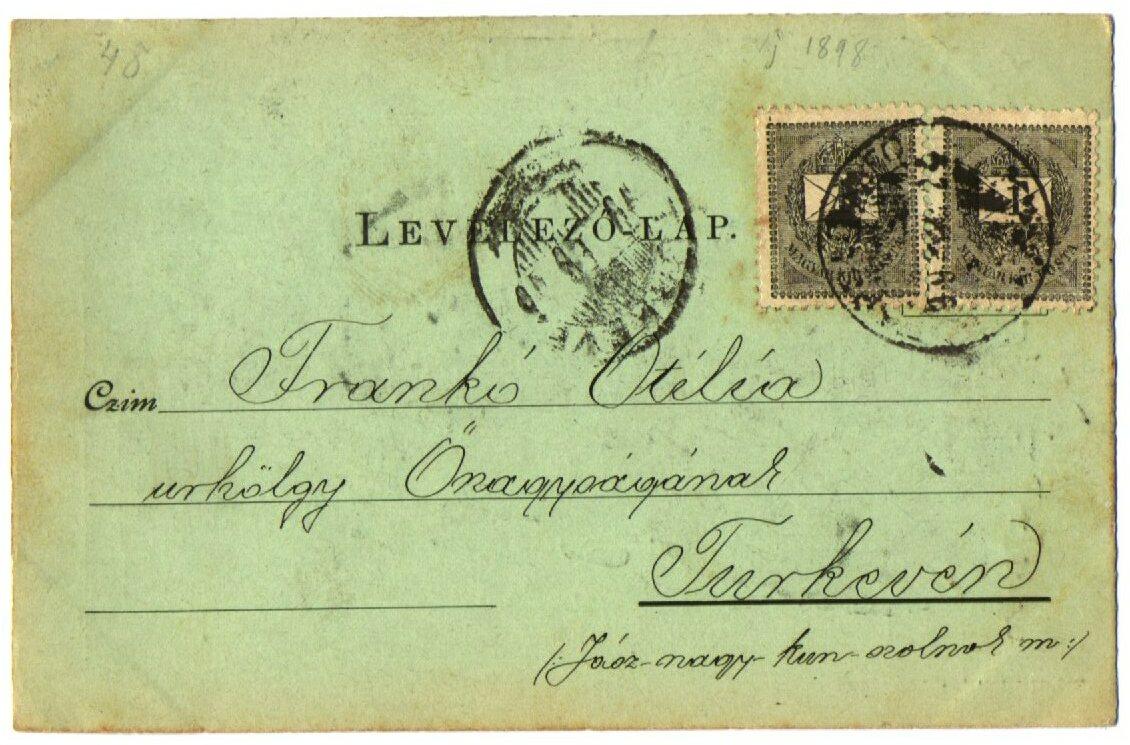 48
1898
LEVELEZŐ-LAP.
MAGYAR KIR. POSTA
Czim Frankó Otélia
urhölgy Őnagyságának
Turkevén
(: Jász-nagy-kun-szolnok m :)